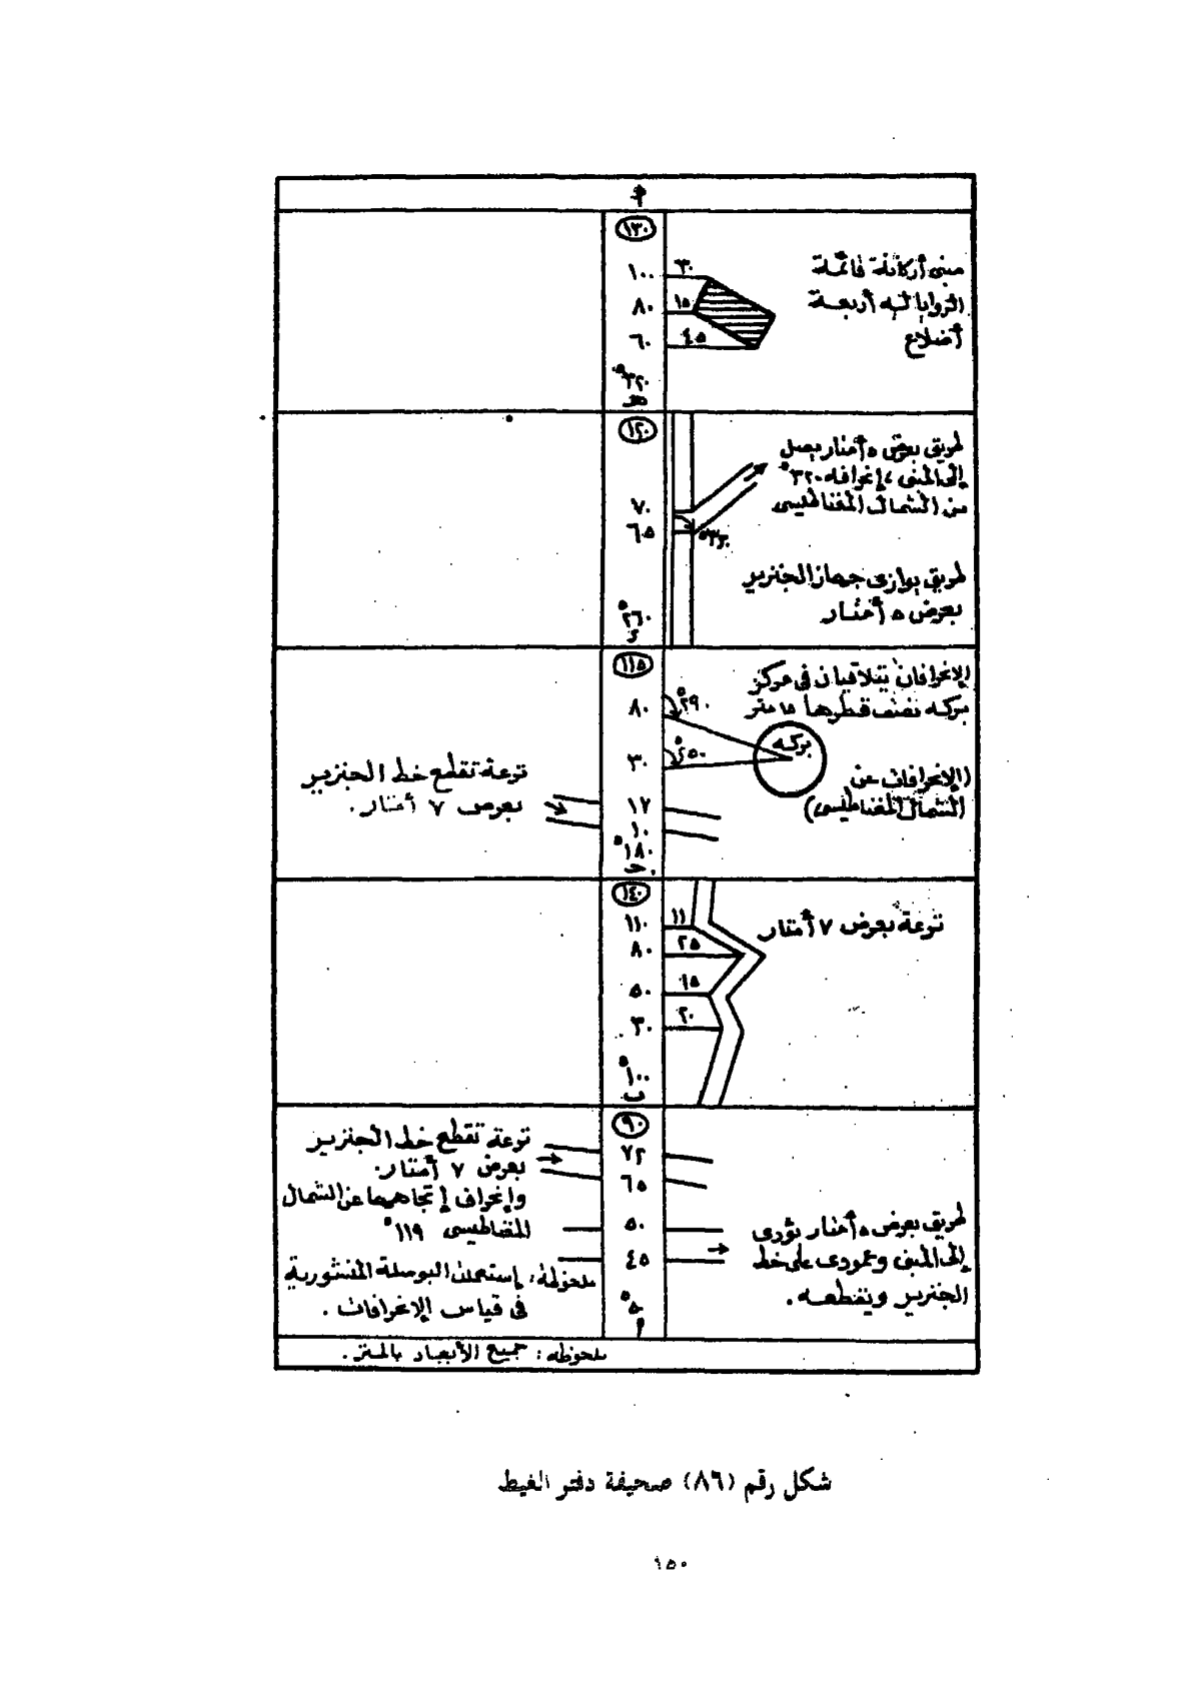 أ
١٣٠
١٠٠ ٣٠
٨٠ ١٥
٦٠ ٤٥
٣٢٠°
هـ
مبنى أركانه قائمة
الزوايا له أربعة
أضلاع
١٢٠
٧٠
٦٥
٢٦٠°
د
طريق بعرض ٥ أمتار يصل
إلى المبنى ، إنحرافه ٣٢٠°
من الشمال المغناطيسى
طريق يوازى جهاز الجنزير
بعرض ٥ أمتار
١١٥
٨٠ ٢٩٠°
٣٠ ٢٥٠°
١٧
١٠
١٨٠°
جـ
الإنحرافان يتلاقيان فى مركز
بركه نصف قطرها ١٥ متر
بركه
(الإنحرافات عن
الشمال المغناطيسى)
ترعة تقطع خط الجنزير
بعرض ٧ أمتار .
١٤٠
١١٠ ١١
٨٠ ٢٥
٥٠ ١٥
٣٠ ٢٠
١٠٠°
ب
ترعة بعرض ٧ أمتار
٩٠
٧٢
٦٥
٥٠
٤٥
٥٠°
أ
ترعة تقطع خط الجنزير
بعرض ٧ أمتار.
وإنحراف إتجاهها عن الشمال
المغناطيسى ١١٩°
ملحوظة : إستعملت البوصلة المنشورية
فى قياس الإنحرافات .
طريق بعرض ٥ أمتار يؤدى
إلى المبنى وعمودى على خط
الجنزير ويقطعه .
ملحوظه : جميع الأبعاد بالمتر .
شكل رقم (٨٦) صحيفة دفتر الغيط
١٥٠